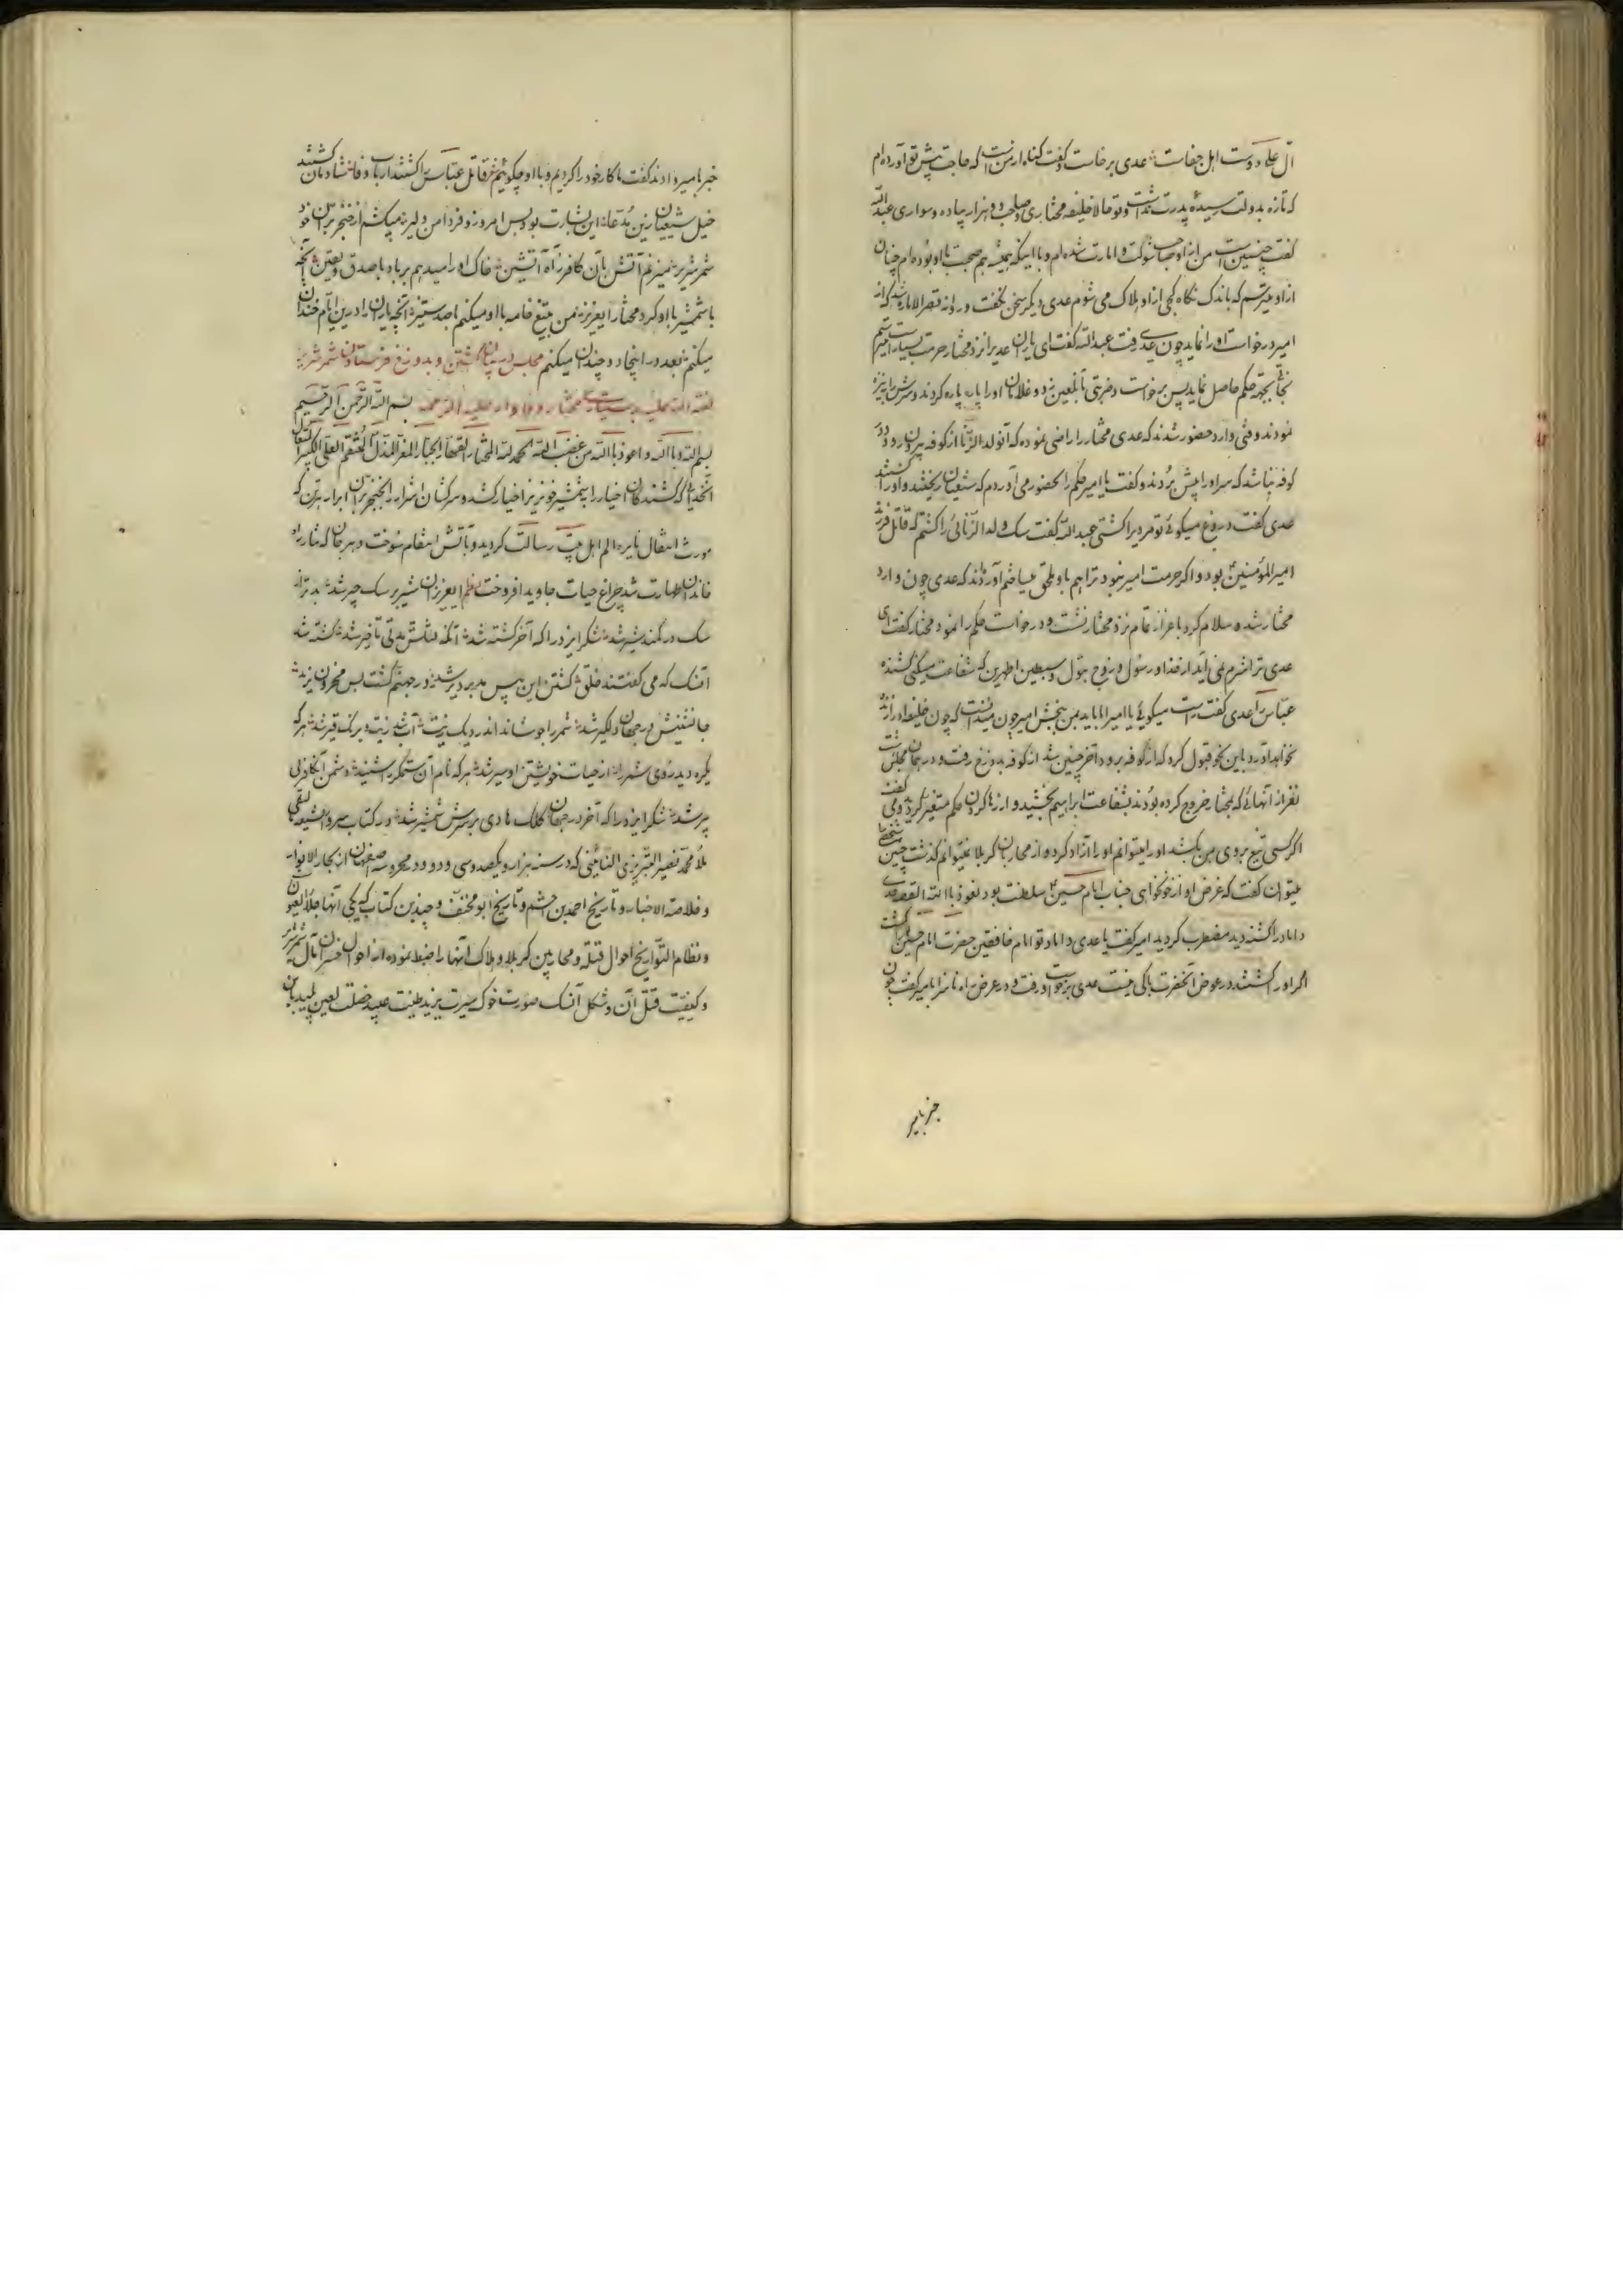 آل علی دوست اهل جفاست عدی برخاست و گفت گناه از من است که حاجت پیش تو آورده‌ام
که تازه بدولت رسیدهٔ پدرت نداشت و تو حالا خلیفه مختاری و صاحب دو هزار پیاده و سواری عبدالله
گفت چنین است من از او صاحب شوکت و امارت شده‌ام و با اینکه همیشه هم صحبت با او بوده‌ام چنان
از او میترسم که باندک نگاه کجی از او هلاک می شوم عدی دیگر سخن نگفت و روانه قصر الاماره شد که از
امیر درخواست او را نماید چون عدی رفت عبدالله گفت ای یاران عدیرا نزد مختار حرمت بسیار است میترسم
حکم حاصل نماید پس برخواست و ضربتی بآنلعین زد و غلامان او را پاره پاره کردند و سرش را بنیزه
نمودند وقتی وارد حضور شدند که عدی مختار را راضی نموده که آنولد الزنا از کوفه بیرون رود و در
کوفه نباشد که سر او را پیش بردند و گفت یا امیر حکم را بحضور می آوردم که شیعیان ریختند و او را کشتند
عدی گفت دروغ میکوئی تو مرد را کشتی عبدالله گفت سک ولد الزنائی را کشتم که قاتل فرزند
امیر المؤمنین بود و اگر حرمت امیر نبود ترا هم باو ملحق میساختم آورده‌اند که عدی چون وارد
مختار شده سلام کرد با عزاز تمام نزد مختار نشست و درخواست حکم را نمود مختار گفت ای
عدی ترا شرم نمی آید از خدا و رسول و زوج بتول و سبطین اطهرین که شفاعت میکنی کشنده
عباس را عدی گفت راست میکوئی یا امیر اما باید بمن ببخشی امیر چون میدانست که چون خلیفه او را زنده
نخواهد آورد باین نحو قبول کرد که از کوفه برود آخر چنین شد از کوفه بدوزخ رفت و در همان مجلس هشت
نفر از آنهائی که بمختار خروج کرده بودند بشفاعت ابراهیم بخشید و از رها کردن حکم متغیر گردید و می گفت
اگر کسی تیغ بروی من بکشد او را میتوانم او را آزاد کرد و از محاربان کربلا نمیتوانم گذشت چنین شخصی را
میتوان گفت که غرض او از خونخواهی جناب امام حسین سلطنت بود نعوذ بالله القصه عدی
داماد را کشته دید مضطرب گردید امیر گفت یا عدی داماد تو امام خافقین حضرت امام حسین را کشت
اگر او را کشتند در عوض آنحضرت باکی نیست عدی برخواست و رفت و در عرض راه ناسزا بامیر گفت چون
خبر بامیر
خبر بامیر دادند گفت ما کار خود را کردیم و با او چکوئیم غرض قاتل عباس را کشتند ارباب وفا شادمان کشتند
خیل شیعیان زین مدعا این بشارت بود پس امروز و فردا من دلیر میکشم از خنجر بران خود
شمر شریر میزنم آتش بآن کافر ز آه آتشین خاک او را میدهم بر باد با صدق و یقین آنچه
با شمشیر با او کرد مختار ایعزیز من بتیغ خامه با او میکنم با صد ستیز آنچه یاران را درین ایام خندان
میکنم بعد در اینجا دو چندان میکنم مجلس در بیان کشتن و بدوزخ فرستادن شمر شریر
لعنة الله علیه بسیاست مختار وفادار علیه الرحمه بسم الله الرحمن الرحیم
بسم الله و بالله و اعوذ بالله من غضب الله الحمد لله المختار القهار الجبار المعز المذل المنتقم العلی الکبیر المتعال
آنخدائی که کشندکان اخیار را بشمشیر خونریز اخیار کشد و سرکشان اشرار را بخنجر بران ابرار بدرک
مورث اشتعال نایره الم اهل بیت رسالت کردید و بآتش انتقام سوخت و هر جان که نثار راه
خاندان طهارت شد چراغ حیات جاوید افروخت نظم ایعزیزان شیر بر سک چیر شد بدتر از
سک در کمند شیر شد شکر ایزد را که آخر کشته شد آنکه قتلش مدتی تأخیر شد کشته شد
آنسک که می گفتند خلق کشتن این پیس مدبر دیر شد در جهنم گشت بس محزون یزید
جانشینش در جهان دلکیر شد شمر را جوشاند اندر دیک زیت آب شد زیت و برنک قیر شد هر که
یکره دید روی شمر را از حیات خویشتن او سیر شد هر که نام آن ستمکر را شنید دشمن آنکافر بی
پیر شد شکر ایزد را که آخر در جهان کلک هادی بر سرش شمشیر شد در کتاب سرور الشیعه
ملا محمد نصیر التبریزی النائینی که در سنه هزار و یکصد و سی و دو در محروسه صفهان از بحار الانوار
و خلاصة الاخبار و تاریخ احمد بن اعثم و تاریخ ابو مخنف و چندین کتاب که یکی آنها جلاء العیون
و نظام التواریخ احوال قتله و محاربین کربلا و هلاک آنها را ضبط نموده از احوال خسران مآل شمر شریر
و کیفیت قتل آن دد شکل آنسک صورت خوک سیرت یزید طینت عبید خصلت لعین پلید باین